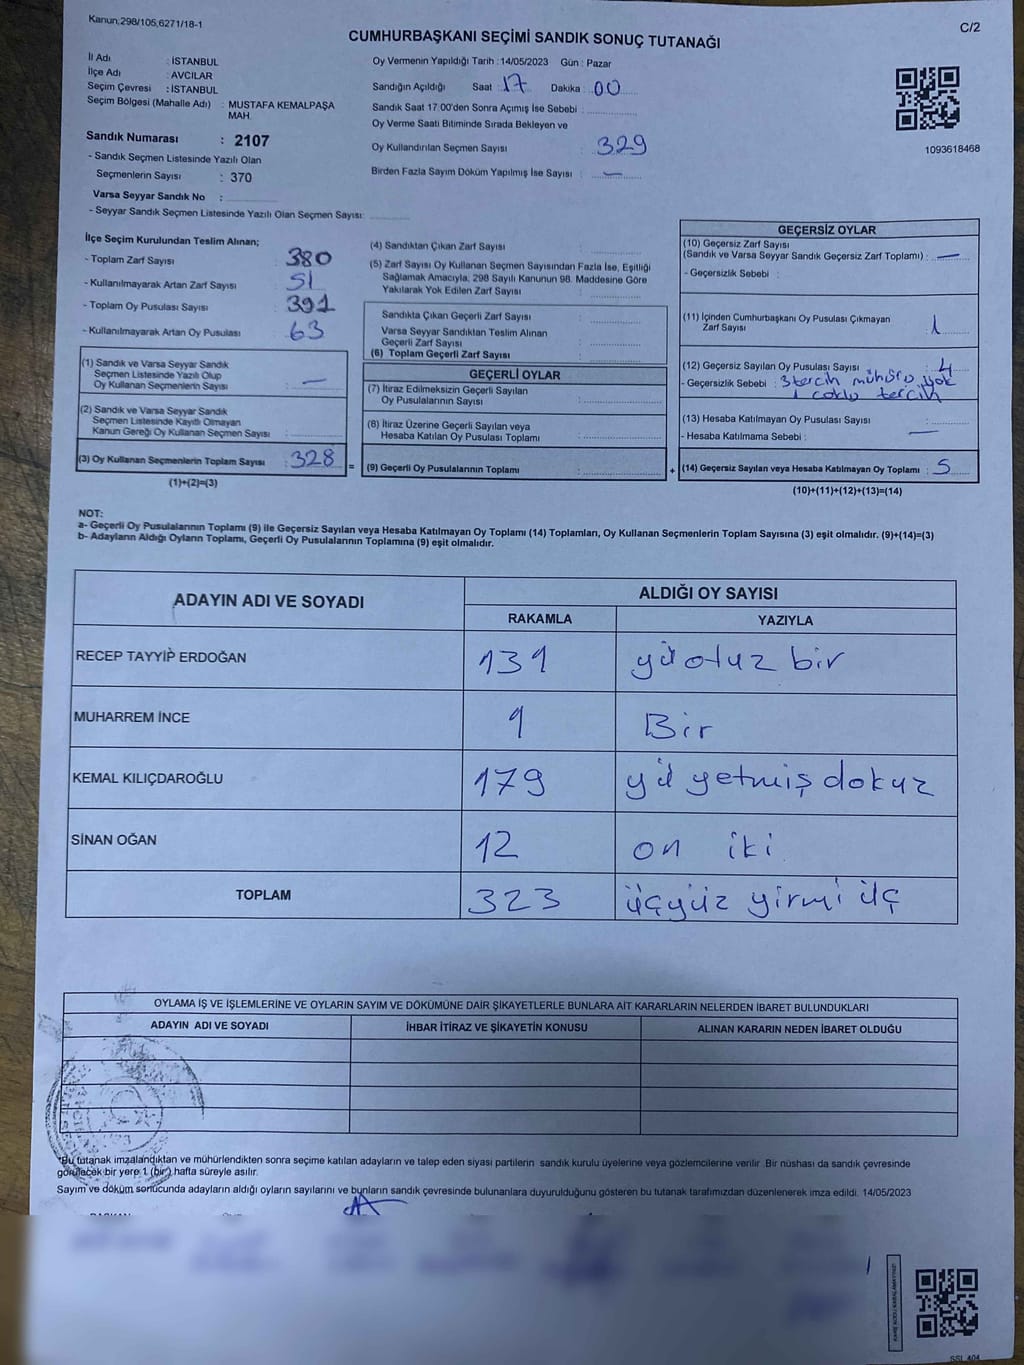 Kanun,298/105,6271/18-1
C/2
CUMHURBAŞKANI SEÇİMİ SANDIK SONUÇ TUTANAĞI
İl Adı : İSTANBUL
İlçe Adı : AVCILAR
Seçim Çevresi : İSTANBUL
Seçim Bölgesi (Mahalle Adı) : MUSTAFA KEMALPAŞA
MAH.
Sandık Numarası : 2107
- Sandık Seçmen Listesinde Yazılı Olan
Seçmenlerin Sayısı : 370
Varsa Seyyar Sandık No :
- Seyyar Sandık Seçmen Listesinde Yazılı Olan Seçmen Sayısı:
Oy Vermenin Yapıldığı Tarih : 14/05/2023 Gün : Pazar
Sandığın Açıldığı Saat : 17 Dakika : 00
Sandık Saat 17.00'den Sonra Açımış İse Sebebi :
Oy Verme Saati Bitiminde Sırada Bekleyen ve
Oy Kullandırılan Seçmen Sayısı : 329
Birden Fazla Sayım Döküm Yapılmış İse Sayısı : —
1093618468
İlçe Seçim Kurulundan Teslim Alınan;
- Toplam Zarf Sayısı : 380
- Kullanılmayarak Artan Zarf Sayısı : 51
- Toplam Oy Pusulası Sayısı : 391
- Kullanılmayarak Artan Oy Pusulası : 63
(1) Sandık ve Varsa Seyyar Sandık
Seçmen Listesinde Yazılı Olup
Oy Kullanan Seçmenlerin Sayısı : —
(2) Sandık ve Varsa Seyyar Sandık
Seçmen Listesinde Kayıtlı Olmayan
Kanun Gereği Oy Kullanan Seçmen Sayısı :
(3) Oy Kullanan Seçmenlerin Toplam Sayısı : 328
(1)+(2)=(3)
=
(4) Sandıktan Çıkan Zarf Sayısı :
(5) Zarf Sayısı Oy Kullanan Seçmen Sayısından Fazla İse, Eşitliği
Sağlamak Amacıyla, 298 Sayılı Kanunun 98. Maddesine Göre
Yakılarak Yok Edilen Zarf Sayısı :
Sandıkta Çıkan Geçerli Zarf Sayısı :
Varsa Seyyar Sandıktan Teslim Alınan
Geçerli Zarf Sayısı :
(6) Toplam Geçerli Zarf Sayısı :
GEÇERLİ OYLAR
(7) İtiraz Edilmeksizin Geçerli Sayılan
Oy Pusulalarının Sayısı :
(8) İtiraz Üzerine Geçerli Sayılan veya
Hesaba Katılan Oy Pusulası Toplamı :
(9) Geçerli Oy Pusulalarının Toplamı :
+
GEÇERSİZ OYLAR
(10) Geçersiz Zarf Sayısı
(Sandık ve Varsa Seyyar Sandık Geçersiz Zarf Toplamı) : —
- Geçersizlik Sebebi :
(11) İçinden Cumhurbaşkanı Oy Pusulası Çıkmayan
Zarf Sayısı : 1
(12) Geçersiz Sayılan Oy Pusulası Sayısı : 4
- Geçersizlik Sebebi : 3 tercih mühürü yok
1 çoklu tercih
(13) Hesaba Katılmayan Oy Pusulası Sayısı : —
- Hesaba Katılmama Sebebi :
(14) Geçersiz Sayılan veya Hesaba Katılmayan Oy Toplamı : 5
(10)+(11)+(12)+(13)=(14)
NOT:
a- Geçerli Oy Pusulalarının Toplamı (9) ile Geçersiz Sayılan veya Hesaba Katılmayan Oy Toplamı (14) Toplamları, Oy Kullanan Seçmenlerin Toplam Sayısına (3) eşit olmalıdır. (9)+(14)=(3)
b- Adayların Aldığı Oyların Toplamı, Geçerli Oy Pusulalarının Toplamına (9) eşit olmalıdır.
ADAYIN ADI VE SOYADI
ALDIĞI OY SAYISI
RAKAMLA YAZIYLA
RECEP TAYYİP ERDOĞAN 131 yüz otuz bir
MUHARREM İNCE 1 Bir
KEMAL KILIÇDAROĞLU 179 yüz yetmiş dokuz
SİNAN OĞAN 12 on iki
TOPLAM 323 üçyüz yirmi üç
OYLAMA İŞ VE İŞLEMLERİNE VE OYLARIN SAYIM VE DÖKÜMÜNE DAİR ŞİKAYETLERLE BUNLARA AİT KARARLARIN NELERDEN İBARET BULUNDUKLARI
ADAYIN ADI VE SOYADI İHBAR İTİRAZ VE ŞİKAYETİN KONUSU ALINAN KARARIN NEDEN İBARET OLDUĞU
*Bu tutanak imzalandıktan ve mühürlendikten sonra seçime katılan adayların ve talep eden siyasi partilerin sandık kurulu üyelerine veya gözlemcilerine verilir. Bir nüshası da sandık çevresinde
görülecek bir yere 1 (bir) hafta süreyle asılır.
Sayım ve döküm sonucunda adayların aldığı oyların sayılarını ve bunların sandık çevresinde bulunanlara duyurulduğunu gösteren bu tutanak tarafımızdan düzenlenerek imza edildi. 14/05/2023